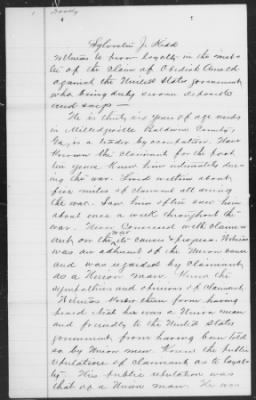 Sylvester J. Kidd
witness to prove loyalty in the mat-
ter of the claim of Obediah Arnold
against the United States government
who being duly sworn deposes
and says —
He is thirty six years of age resides
in Milledgeville Baldwin County,
Ga, is a trader by occupation. Have
known the claimant for the past
ten years. Knew him intimately dur-
ing the war. Lived within about
five miles of claimant all during
the war. Saw him often over him
about once a week throughout the
war. Never Conversed with claim-
ant on the war its causes & progress. Witness
was an adherent of the Union cause
and was regarded by claimant
as a Union man. Knew the
sympathies and opinions of claimant.
Witness knows them from having
heard that he was a Union man
and friendly to the United States
government from having been told
so by Union men. Knows the public
reputation of claimant as to loyal-
ty. His public reputation was
that of a Union man. He was